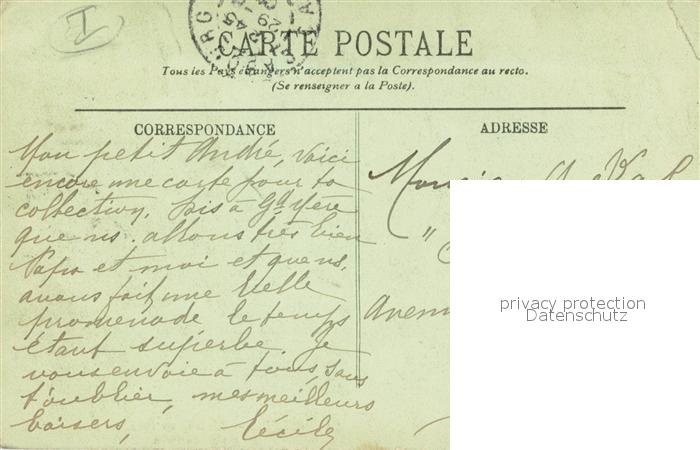 I
CARTE POSTALE
Tous les Pays étrangers n'acceptent pas la Correspondance au recto.
(Se renseigner a la Poste).
CORRESPONDANCE
Mon petit André, voici
encore une carte pour ta
collection. Dis à Gd Mère
que ns. allons très bien
Papa et moi et que ns.
avons fait une belle
promenade le temps
étant superbe. Je
vous envoie à tous, sans
t'oublier, mes meilleurs
baisers,
Cécile
ADRESSE
"
privacy protection
Datenschutz